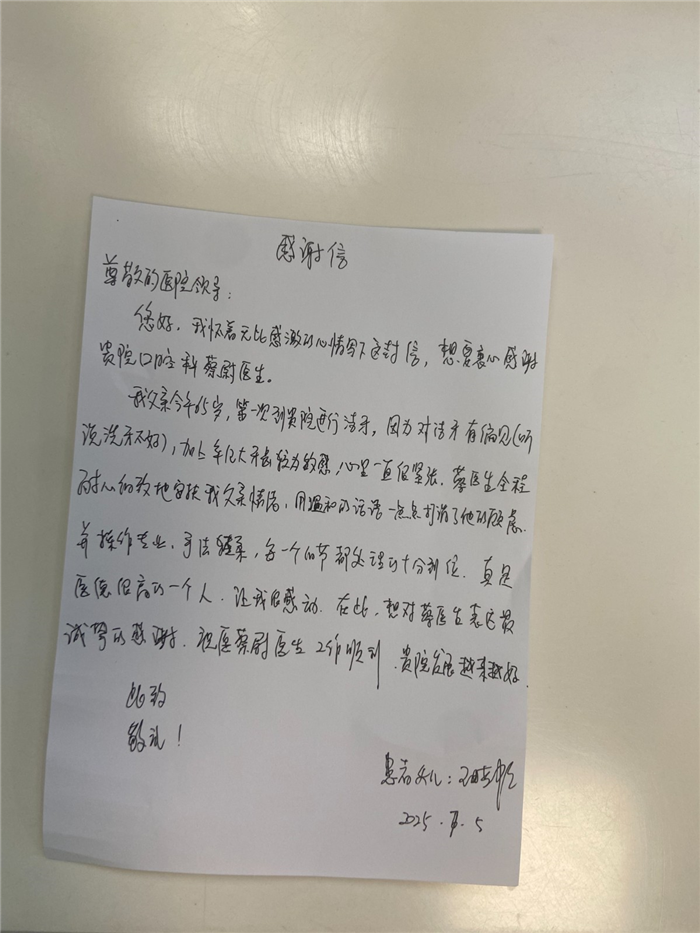 感谢信
尊敬的医院领导：
您好，我怀着无比感激的心情写下这封信，想要衷心感谢
贵院口腔科蔡尉医生。
我父亲今年65岁，第一次到贵院进行洁牙，因为对洁牙有偏见(听
说洗牙不好)，加上年纪大牙齿较为敏感，心里一直很紧张。蔡医生全程
耐心细致地安抚我父亲情绪，用温和的话语一点点打消了他的顾虑.
并操作专业、手法轻柔，每一个细节都处理的十分到位. 真是
医德很高的一个人. 让我很感动. 在此，想对蔡医生表达最
诚挚的感谢. 祝愿蔡尉医生工作顺利、贵院发展越来越好.
此致
敬礼！
患者女儿：
2025. . 5